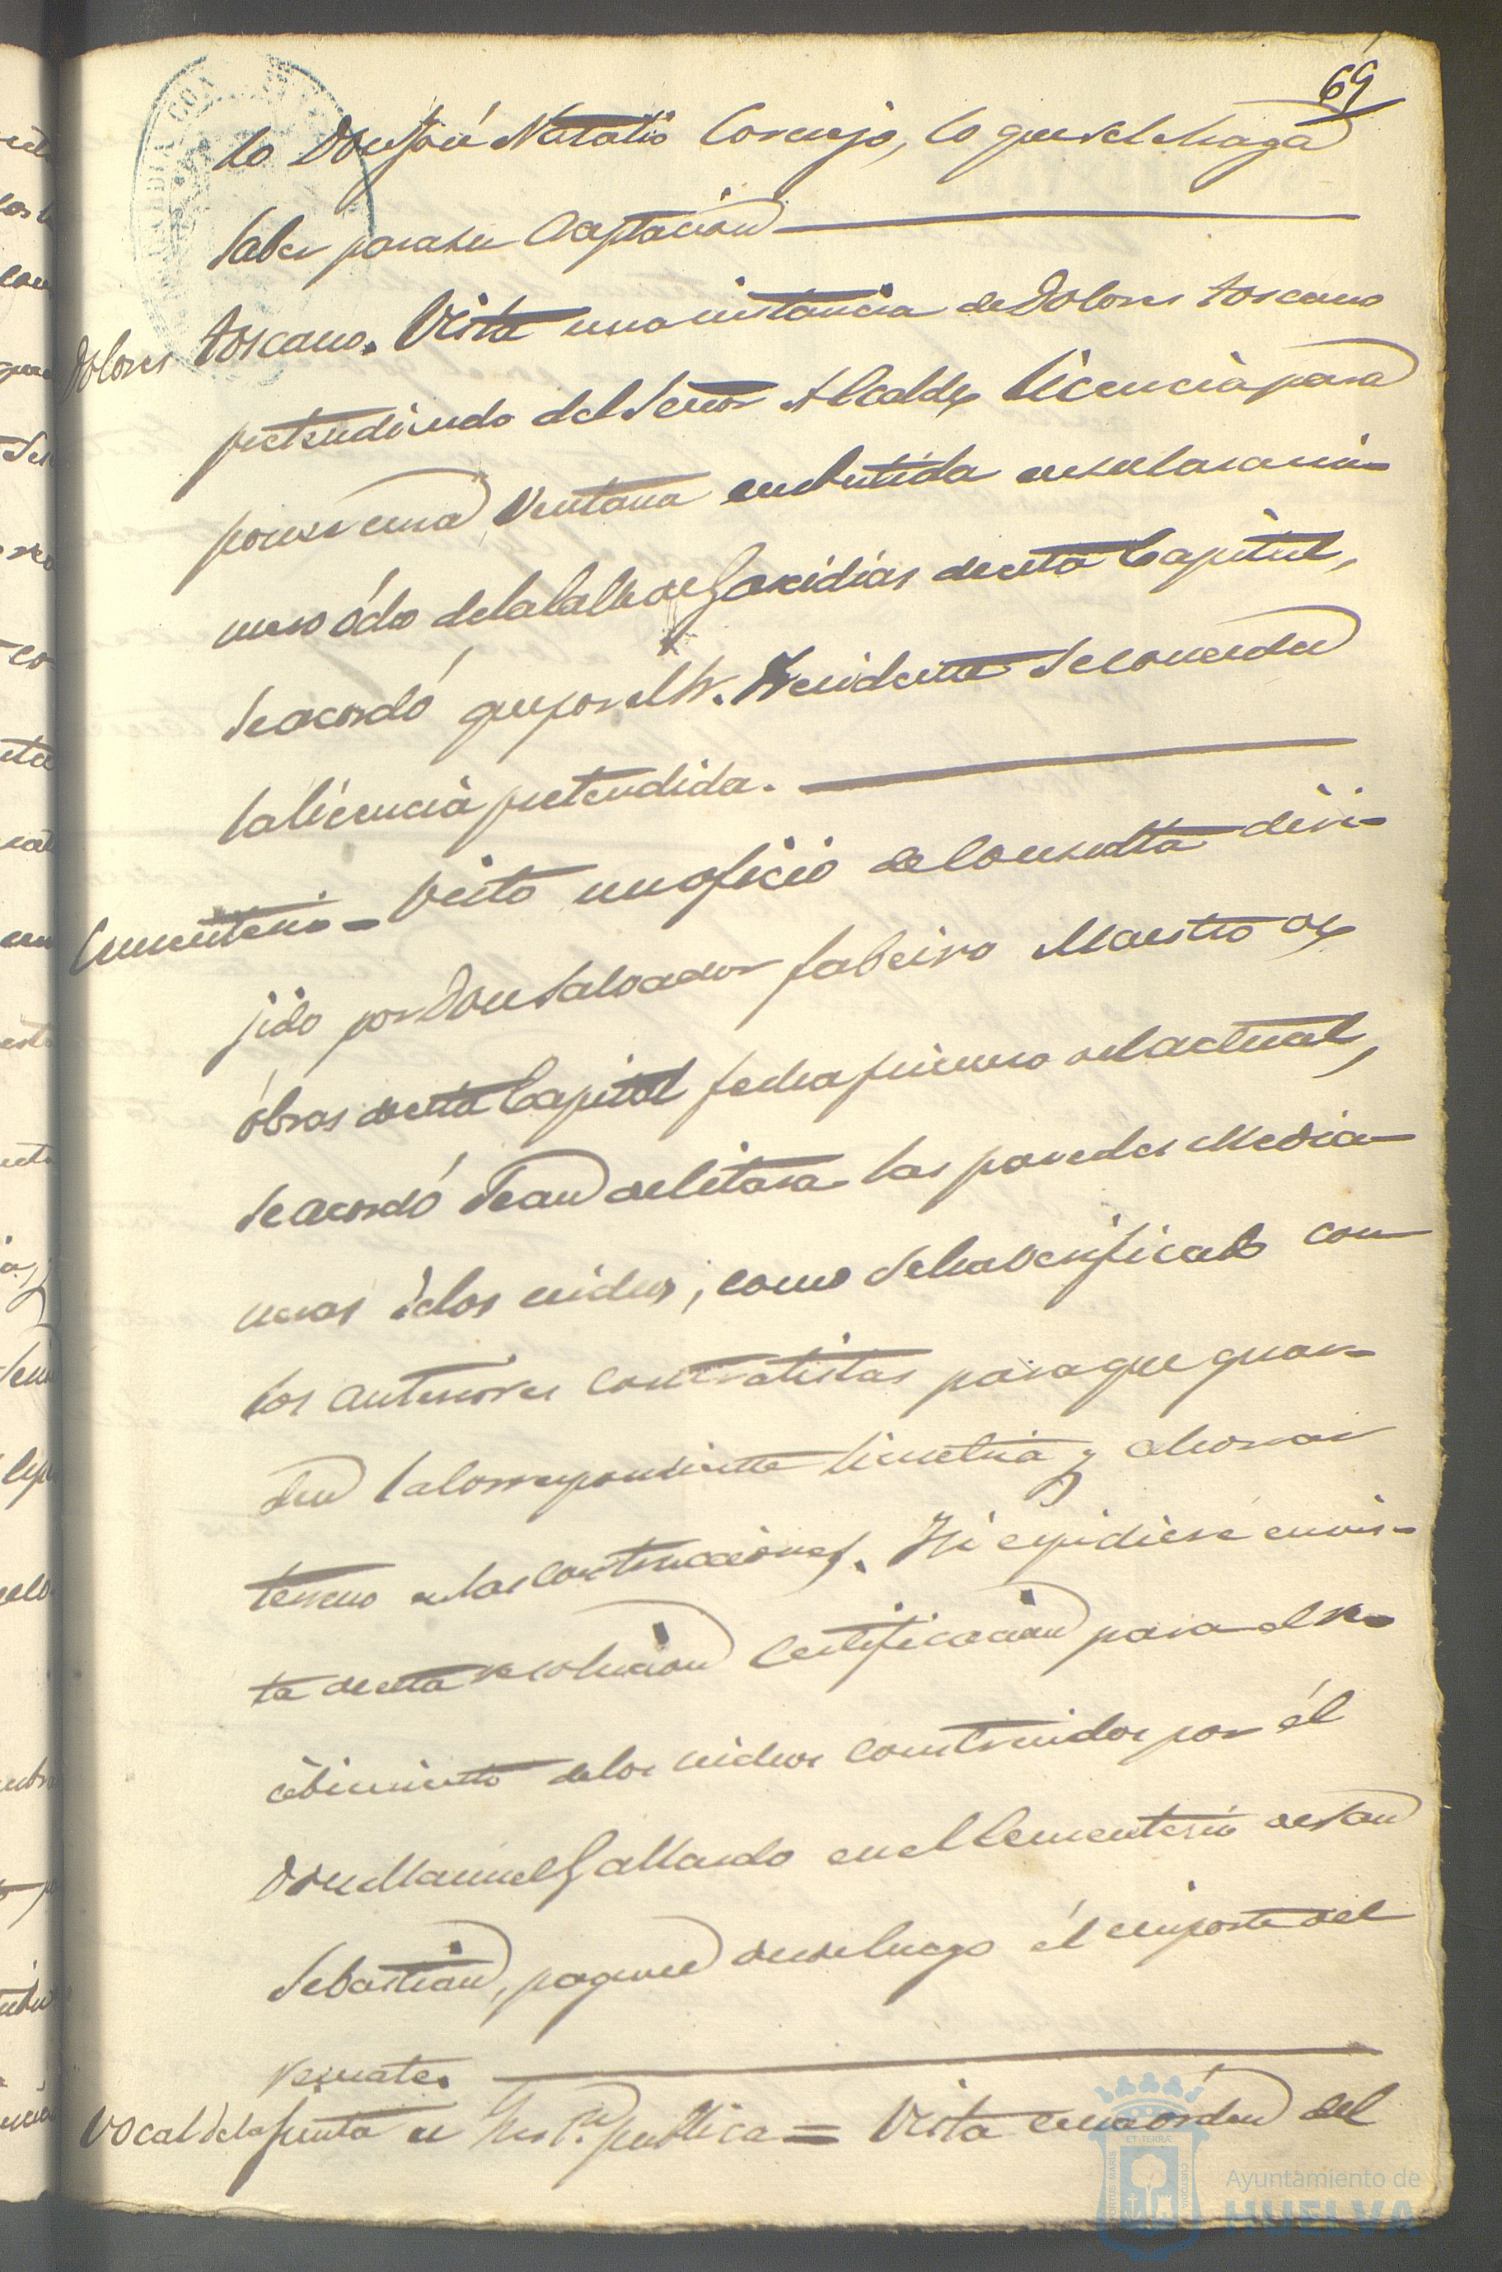 69
do Don José Natalio Cornejo, lo que se le haga
saber para su aceptacion
Dolores Toscano. Vista una instancia de Dolores Toscano
pretendiendo del Señor Alcalde licencia para
poner una Ventana embutida en su casa nú-
mero ocho de la Calle de Garcidias de esta Capital,
se acordó que por el Sr. Presidente se conceda
la licencia pretendida.
Cementerio = Visto un oficio de consulta diri-
jido por Don Salvador Maestro de
obras de esta Capital fecha primero del actual,
se acordó sean de litara las paredes media-
neras de los nichos, como se ha verificado con
los anteriores contratistas para que guar-
den la correspondiente simetria y ahorrar
terreno en las construcciones. Y si espidiese en vis-
ta de esta resolucion Certificacion para el re-
cibimiento de los nichos construidos por él
Don Manuel Gallardo en el Cementerio de San
Sebastian, paguese desde luego él importe del
remate.
Vocal de la Junta de Inst.n publica = Vista una orden del
Ayuntamiento de
HUELVA